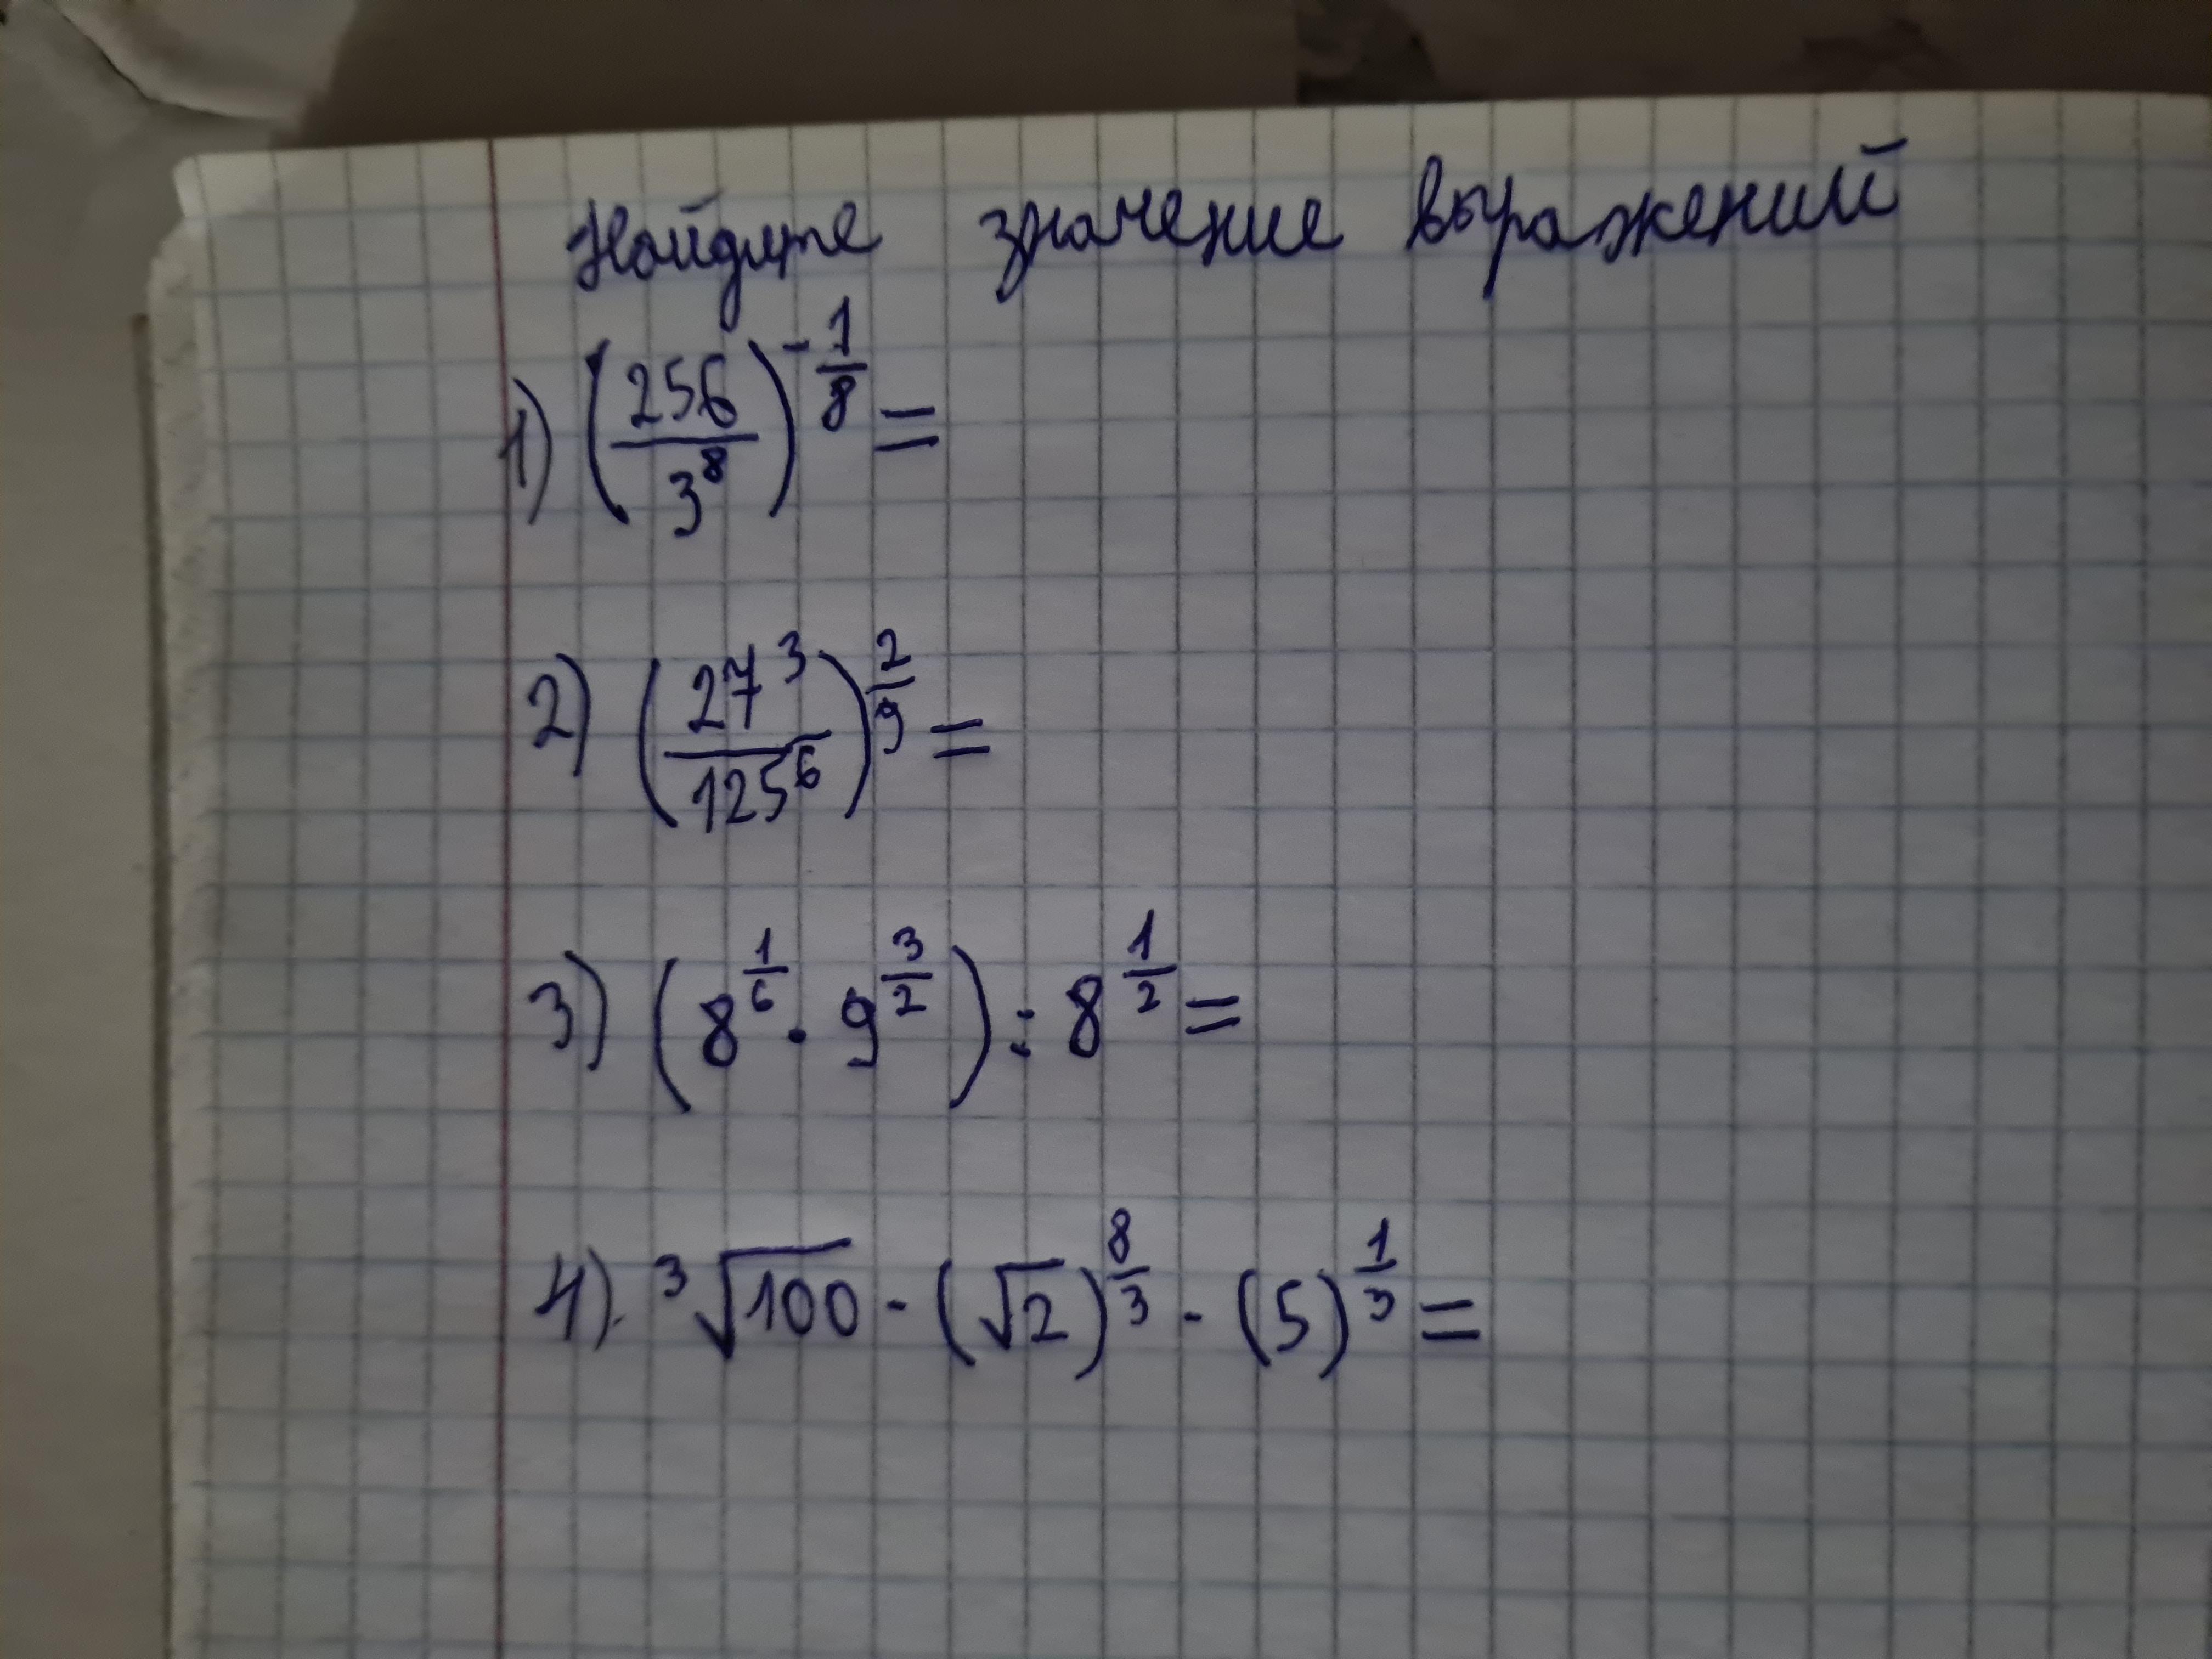 Найдите значение выражений
1) (256/3⁸)^(-1/8) =
2) (27³/125⁶)^(2/9) =
3) (8^(1/6) · 9^(3/2)) : 8^(1/2) =
4). ³√100 · (√2)^(8/3) · (5)^(1/3) =